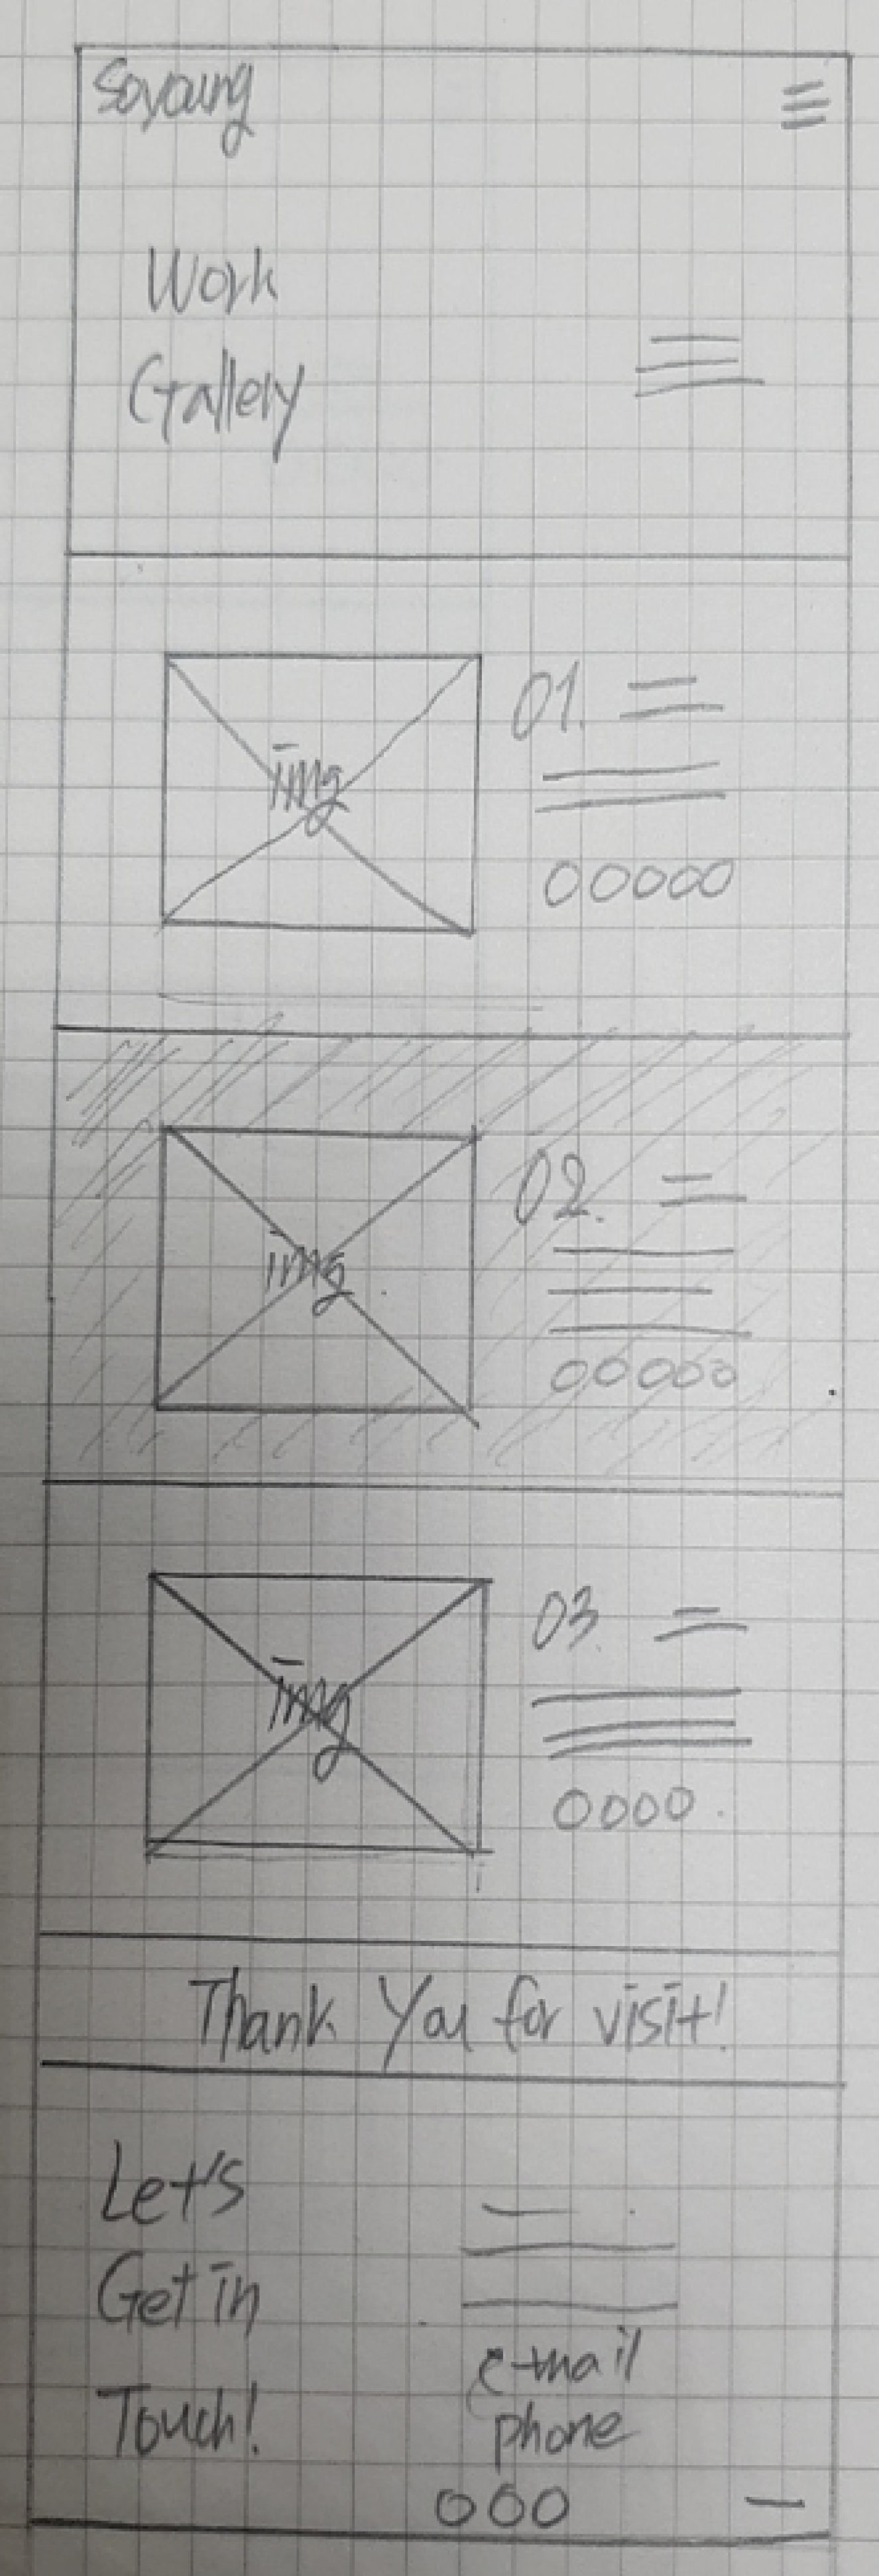 Soyoung
Work
Gallery
img
01.
img
02.
img
03.
Thank You for visit!
Let's
Get in
Touch!
e-mail
phone